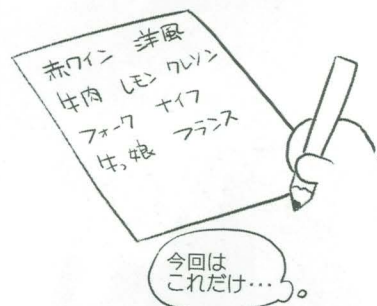 赤ワイン 洋風
牛肉 レモン クレソン
フォーク ナイフ
牛っ娘 フランス
今回は
これだけ…